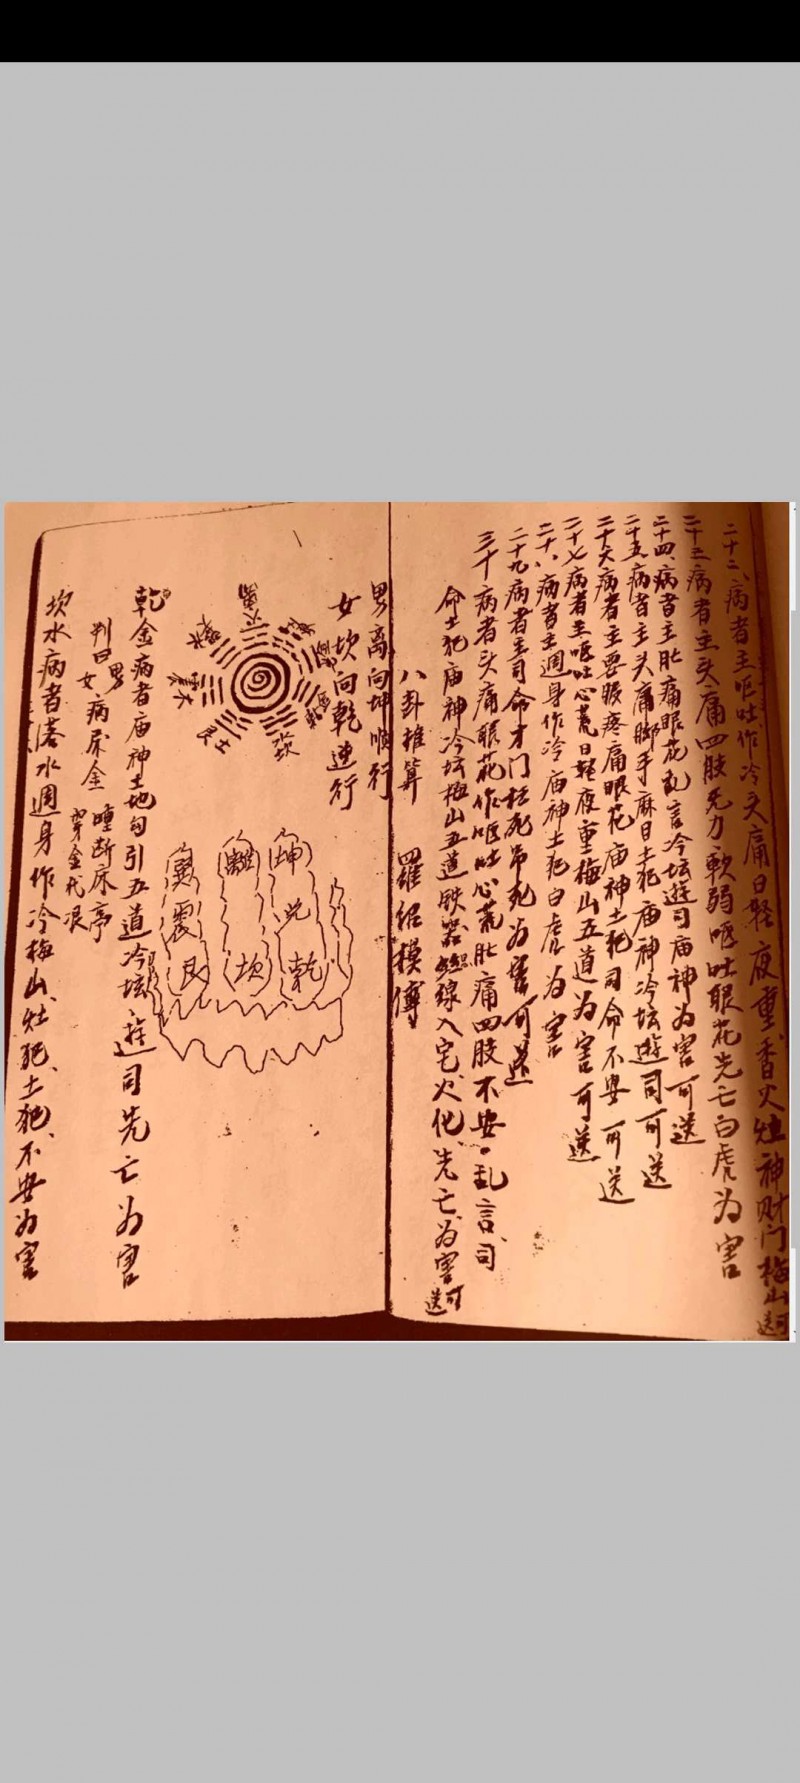 二十二、病者主呕吐作冷头痛日轻夜重香火灶神财门梅山可送
二十三病者主头痛四肢无力軟弱呕吐眼花先亡白虎为害
二十四、病者主肚痛眼花乱言冷坛遊司庙神为害可送
二十五病者主头痛脚手麻日土犯庙神冷坛遊司可送
二十六病者主要疼痛眼花庙神土犯司命不安可送
二十七病者主呕吐心荒日轻夜重梅山五道为害可送
二十八病者主週身作冷庙神土犯白虎为害
二十九病者主司命才门枉死吊死为害可送
三十病者头痛眼花作呕吐心荒肚痛四肢不安乱言司
命土犯庙神冷坛梅山五道铁器線入宅火化先亡为害可送
八卦推算 羅紹模傳
男離向坤順行
女坎向乾逆行
離火
震木
艮土
坎
坤兑乾
離坎
巽震艮
乾金病者庙神土地勾引五道冷坛遊司先亡为害
判曰男女病 金 睡断床亭
穿金代
坎水病者落水週身作冷梅山、灶犯、土犯、不安为害